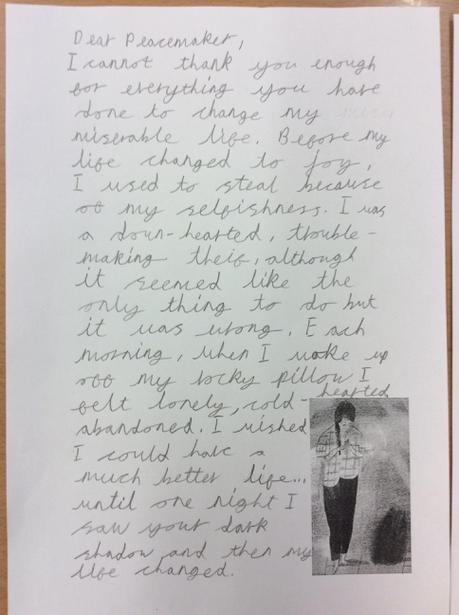 Dear Peacemaker,
I cannot thank you enough
for everything you have
done to change my
miserable life. Before my
life changed to joy,
I used to steal because
of my selfishness. I was
a down-hearted, trouble-
making theif, although
it seemed like the
only thing to do but
it was wrong. Each
morning, when I woke up
off my rocky pillow I
felt lonely, cold-hearted
abandoned. I wished
I could have a
much better life...
until one night I
saw your dark
shadow and then my
life changed.